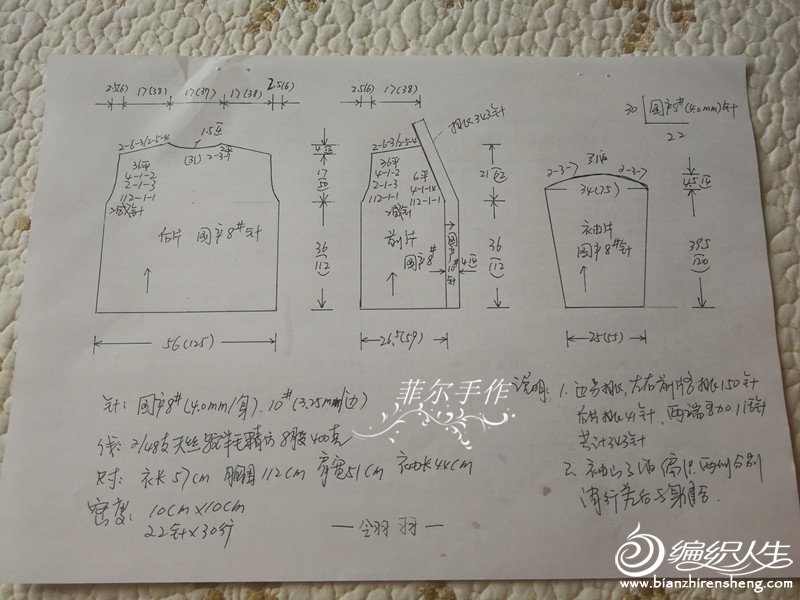 2.5(6) 17(38) 17(37) 17(38) 2.5(6)
2-6-3/2-5-4
1.5
(31)
2-3-
36平
4-1-2
2-1-3
112-1-1
后片 国产8#针
4
17
36
(112)
56(125)
2.5(6) 17(38)
挑织343针
2-6-3/2-5-4
36平
4-1-2
2-1-3
112-1-1
6平
4-1-14
112-1-1
前片
国产8#
国产10#针
4
21(62)
36
(112)
26.5(59)
30 国产8#(4.0mm)针
22
2-3-7 2-3-7
34(75)
袖片
国产8#针
4.5
39.5
(120)
25(55)
针: 国产8#(4.0mm/身). 10#(3.25mm/边)
线: 2/48支天丝 羊毛精纺8股400克
尺寸: 衣长57cm 胸围112cm 肩宽51cm 袖长44cm
密度: 10cm×10cm
22针×30行
说明: 1. 左右前片各挑150针
后片挑41针, 两端各加1
共计343针
2. 袖山 两侧分别
菲尔手作
编织人生
www.bianzhirensheng.com